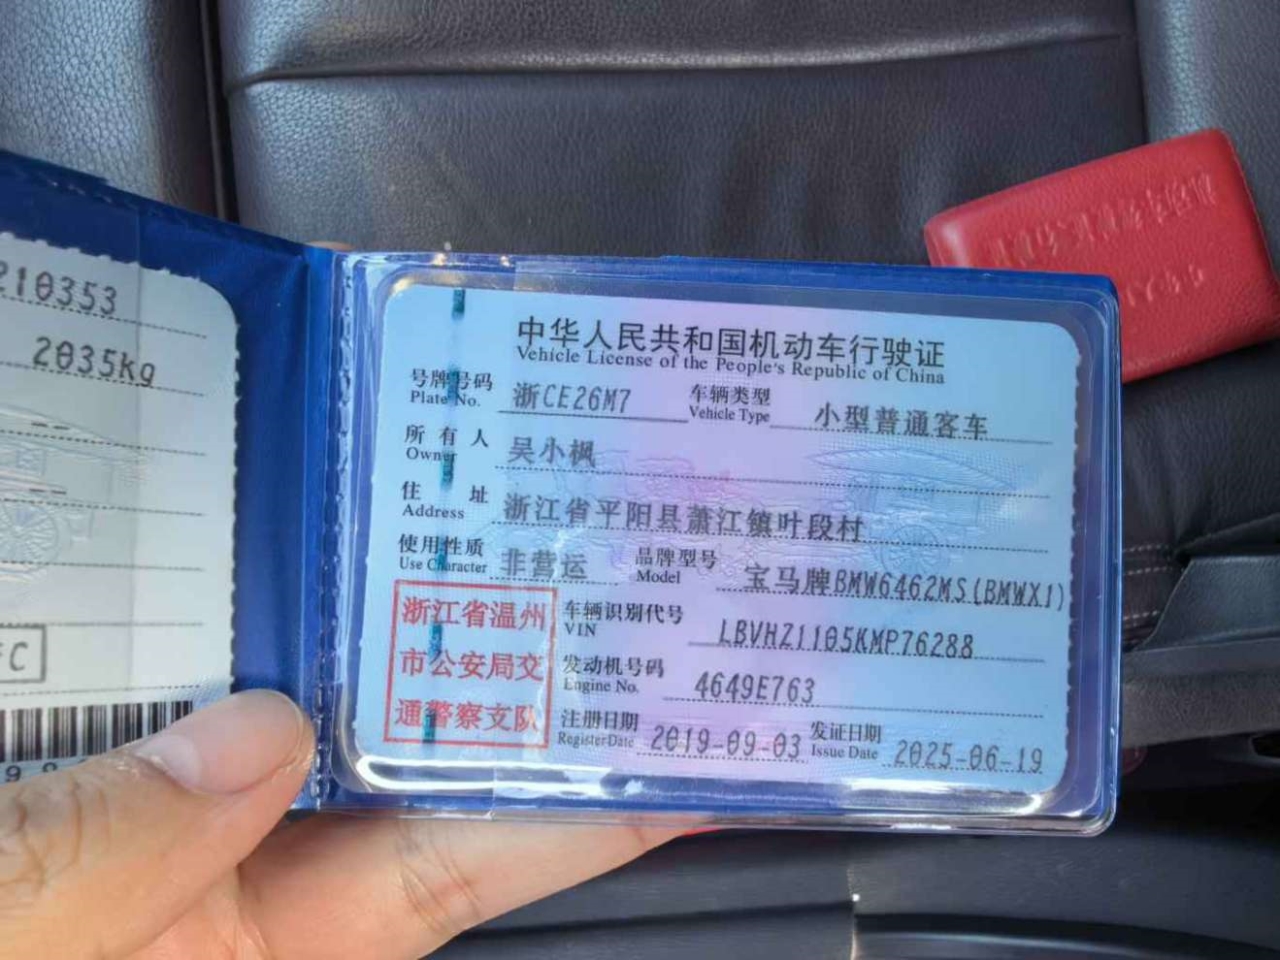 210353
2035kg
中华人民共和国机动车行驶证
Vehicle License of the People's Republic of China
号牌号码 浙CE26M7 车辆类型 小型普通客车
Plate No. Vehicle Type
所有人 吴小枫
Owner
住址 浙江省平阳县萧江镇叶段村
Address
使用性质 非营运 品牌型号 宝马牌BMW6462MS(BMWX1)
Use Character Model
浙江省温州
市公安局交
通警察支队
车辆识别代号 LBVHZ1105KMP76288
VIN
发动机号码 4649E763
Engine No.
注册日期 2019-09-03 发证日期 2025-06-19
Register Date Issue Date